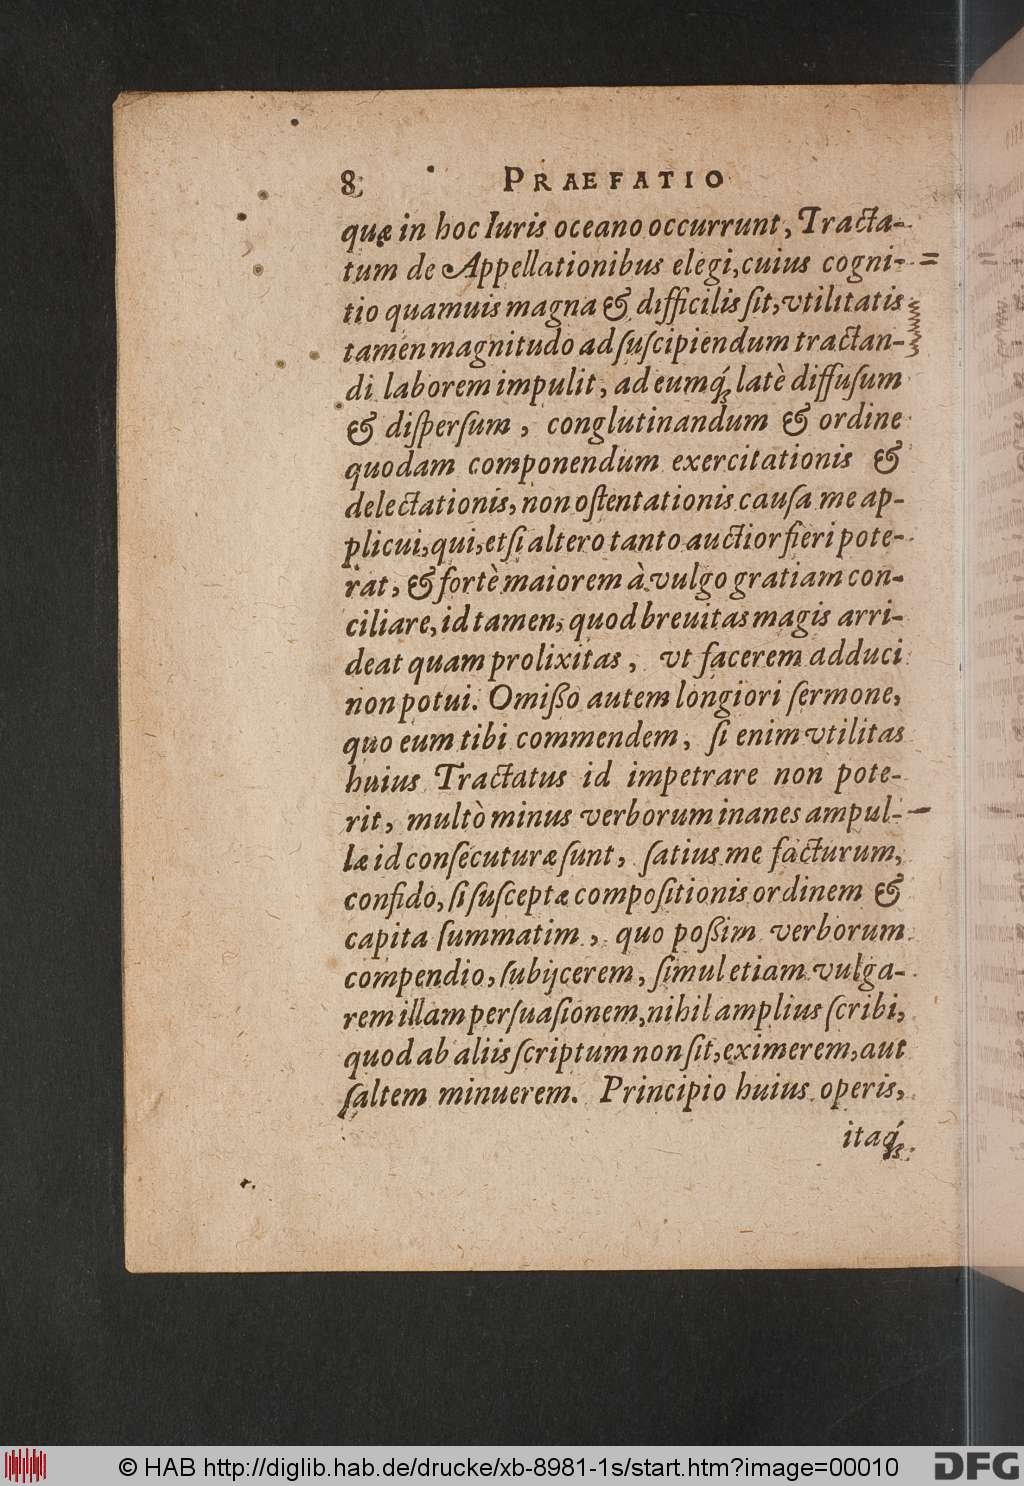 8 PRAEFATIO
quæ in hoc Iuris oceano occurrunt, Tracta-
tum de Appellationibus elegi, cuius cogni-
tio quamuis magna & difficilis ſit, vtilitatis
tamen magnitudo ad ſuſcipiendum tractan-
di laborem impulit, ad eumq́ꝫ latè diffuſum
& diſperſum, conglutinandum & ordine
quodam componendum exercitationis &
delectationis, non oſtentationis cauſa me ap-
plicui, qui, etſi altero tanto auctior fieri pote-
rat, & fortè maiorem à vulgo gratiam con-
ciliare, id tamen, quod breuitas magis arri-
deat quam prolixitas, vt facerem adduci
non potui. Omißo autem longiori ſermone,
quo eum tibi commendem, ſi enim vtilitas
huius Tractatus id impetrare non pote-
rit, multò minus verborum inanes ampul-
læ id conſecuturæ ſunt, ſatius me facturum,
confido, ſi ſuſceptæ compoſitionis ordinem &
capita ſummatim, quo poßim verborum
compendio, ſubijcerem, ſimul etiam vulga-
rem illam perſuaſionem, nihil amplius ſcribi,
quod ab aliis ſcriptum non ſit, eximerem, aut
ſaltem minuerem. Principio huius operis,
itaq́ꝫ
© HAB http://diglib.hab.de/drucke/xb-8981-1s/start.htm?image=00010
DFG